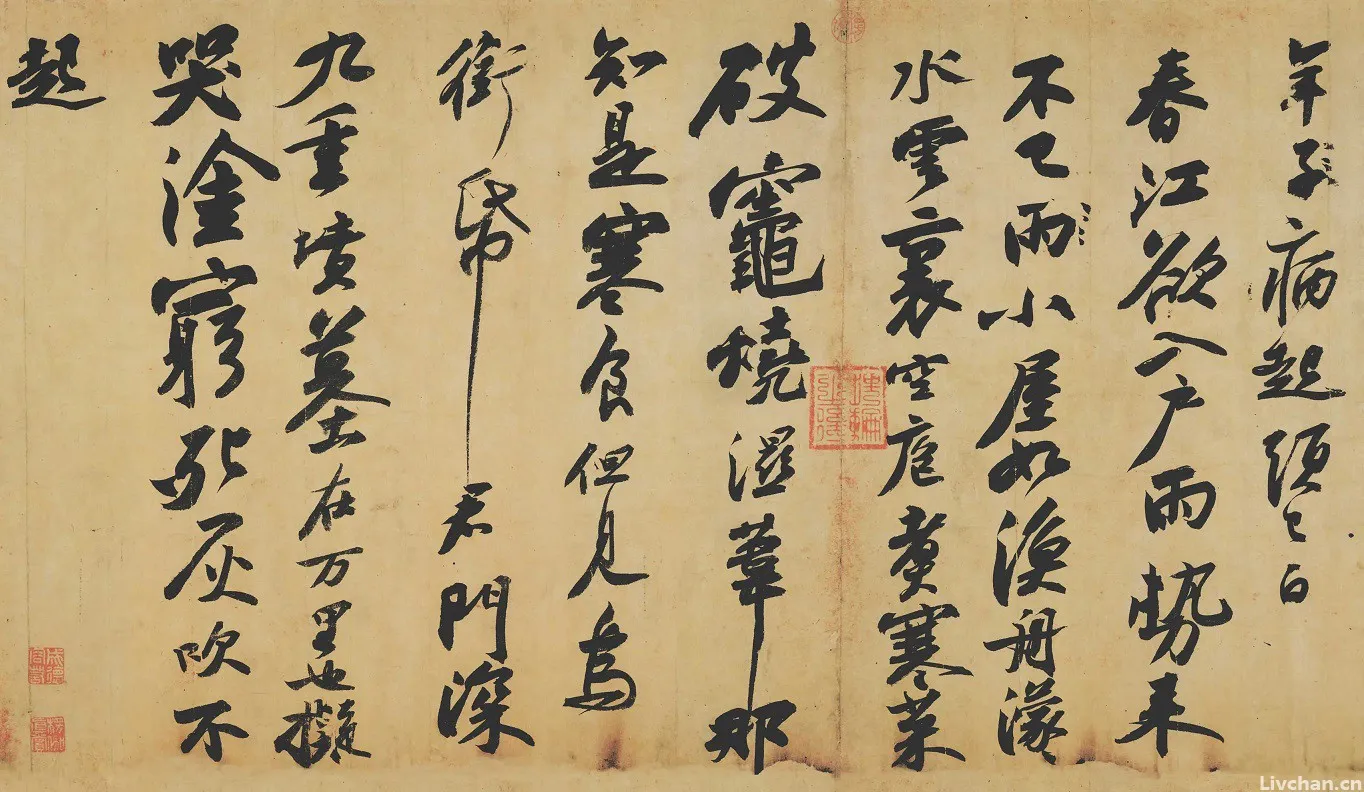 年子病起須已白
春江欲入戶雨勢来
不已雨小屋如漁舟濛々
水雲裏空庖煑寒菜
破竈燒濕葦那
知是寒食但見烏
銜帋君門深
九重墳墓在万里也擬
哭塗窮死灰吹不
起
Livchan.cn